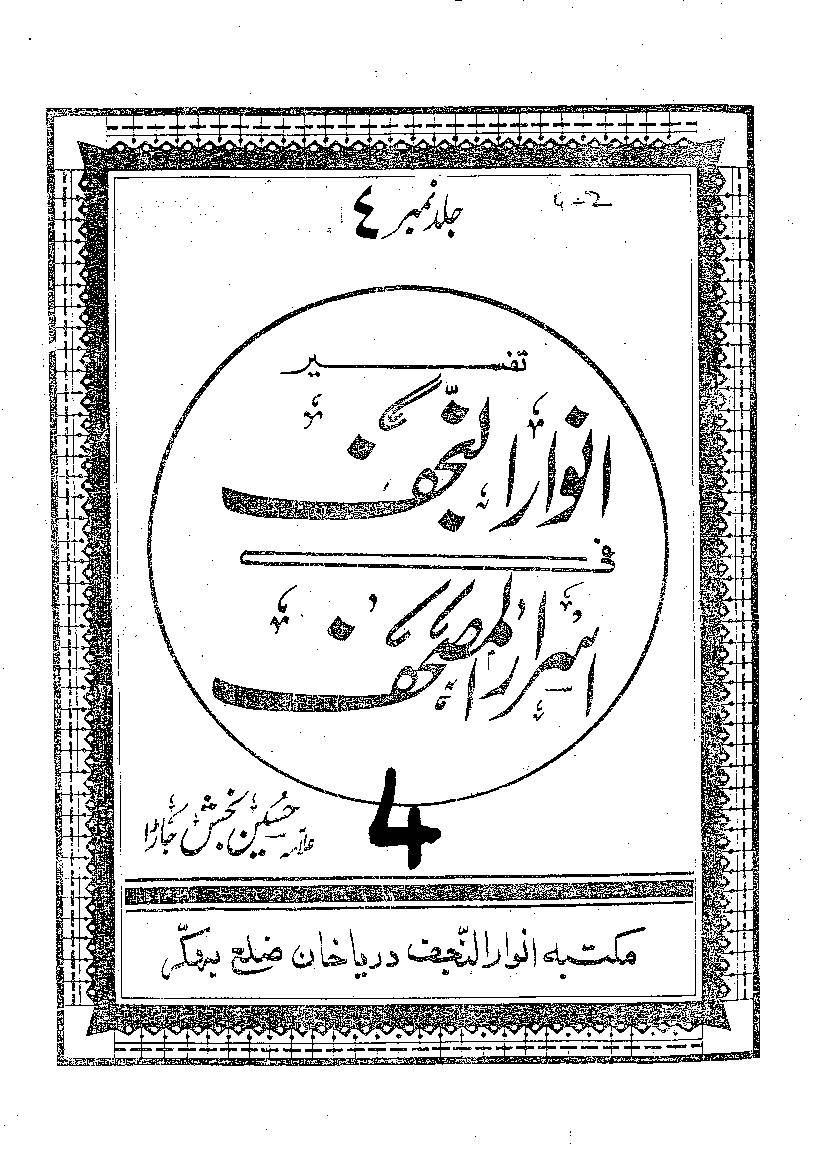 جلد نمبر ٤
تفسیر
انوار النّجف
فی
اسرار المصحف
4
علامہ حسین بخش جاڑا
مکتبہ انوار النّجف دریا خان ضلع بھکّر